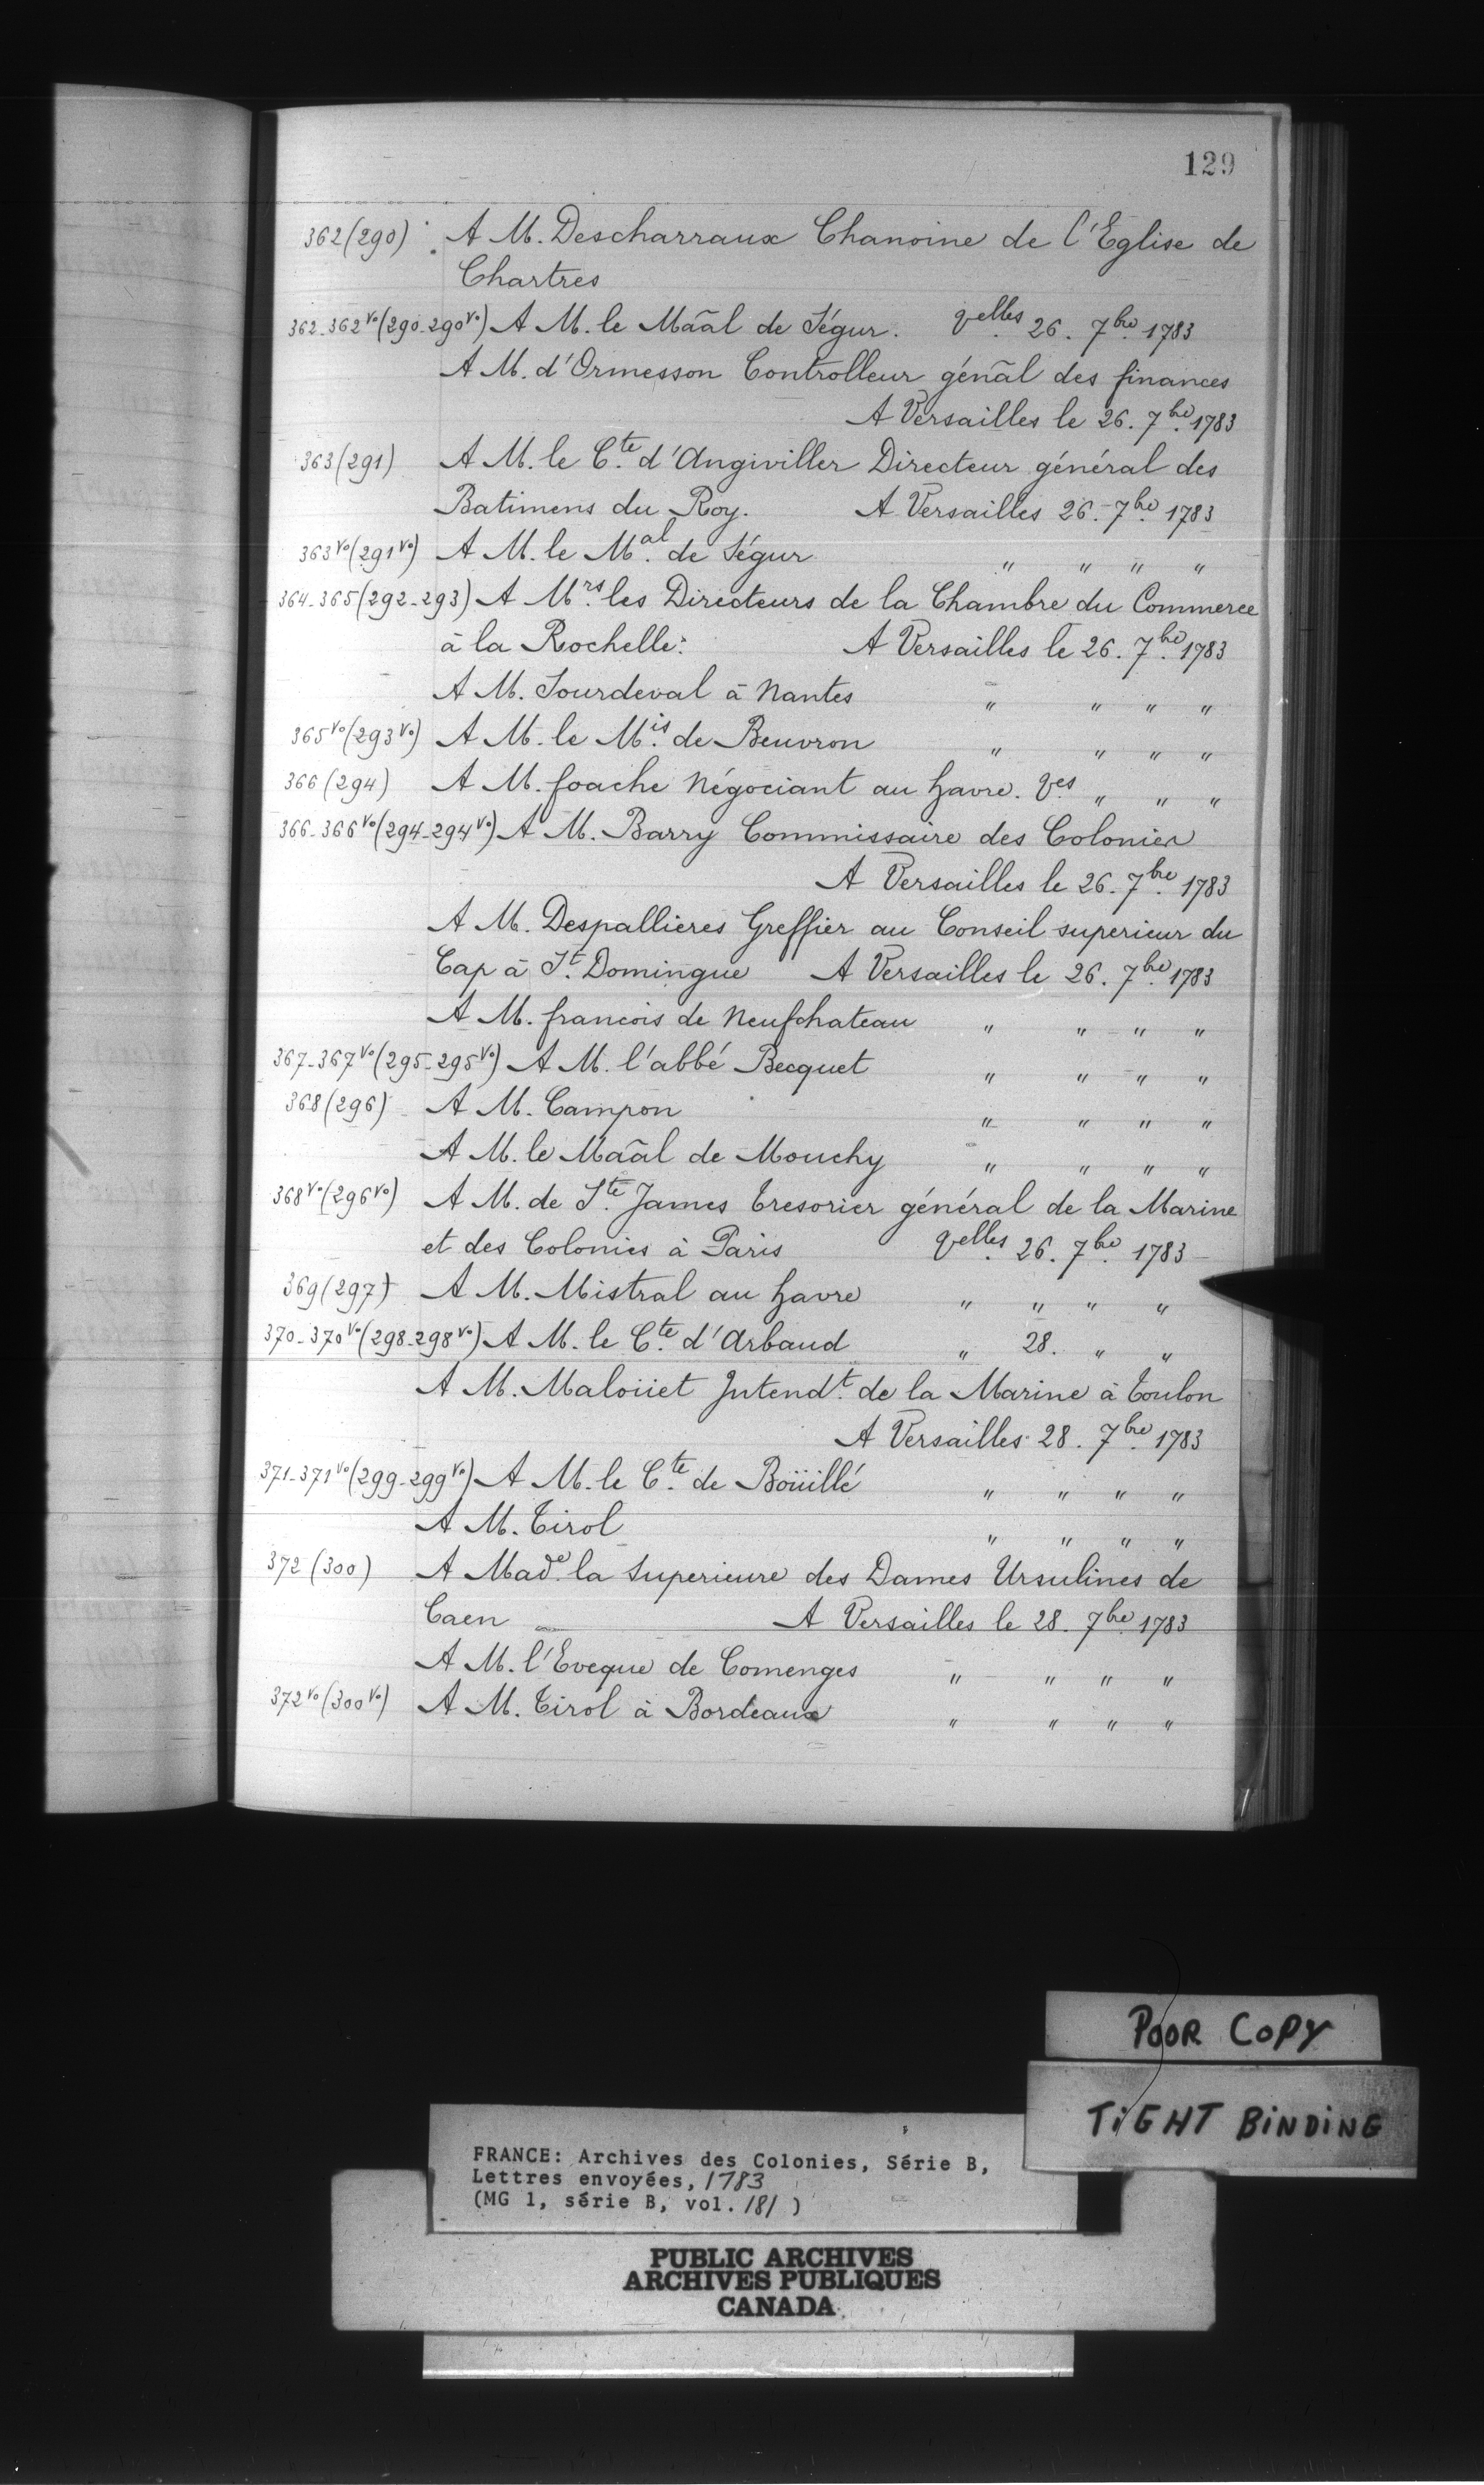 129
362 (290) A M. Descharraux Chanoine de l'Eglise de
Chartres
362-362 vo (290-290 vo) A M. le Maãl de Ségur. Velles 26. 7bre 1783
A M. d'Ormesson Controlleur génãl des finances
A Versailles le 26. 7bre 1783
363 (291) A M. le Cte d'Angiviller Directeur général des
Batimens du Roy. A Versailles 26. 7bre 1783
363 vo (291 vo) A M. le Mal de Ségur " " " "
364-365 (292-293) A Mrs les Directeurs de la Chambre du Commerce
à la Rochelle: A Versailles le 26. 7bre 1783
A M. Sourdeval à Nantes " " " "
365 vo (293 vo) A M. le Mis de Beuvron " " " "
366 (294) A M. foache Négociant au havre. Ves " " "
366-366 vo (294-294 vo) A M. Barry Commissaire des Colonies
A Versailles le 26. 7bre 1783
A M. Despallieres Greffier au Conseil superieur du
Cap à St. Domingue A Versailles le 26. 7bre 1783
A M. francois de Neufchateau " " " "
367-367 vo (295-295 vo) A M. l'abbé Becquet " " " "
368 (296) A M. Campon " " " "
A M. le Maãl de Mouchy " " " "
368 vo (296 vo) A M. de Ste James Tresorier général de la Marine
et des Colonies à Paris Velles 26. 7bre 1783
369 (297) A M. Mistral au havre " " " "
370-370 vo (298-298 vo) A M. le Cte d'Arbaud " 28. " "
A M. Maloüet Intendt. de la Marine à Toulon
A Versailles 28. 7bre 1783
371-371 vo (299-299 vo) A M. le Cte de Boüillé " " " "
A M. Tirol " " " "
372 (300) A Made la Superieure des Dames Ursulines de
Caen A Versailles le 28. 7bre 1783
A M. l'Eveque de Comenges " " " "
372 vo (300 vo) A M. Tirol à Bordeaux " " " "
POOR COPY
TIGHT BINDING
FRANCE: Archives des Colonies, Série B,
Lettres envoyées, 1783
(MG 1, série B, vol. 181 )
PUBLIC ARCHIVES
ARCHIVES PUBLIQUES
CANADA